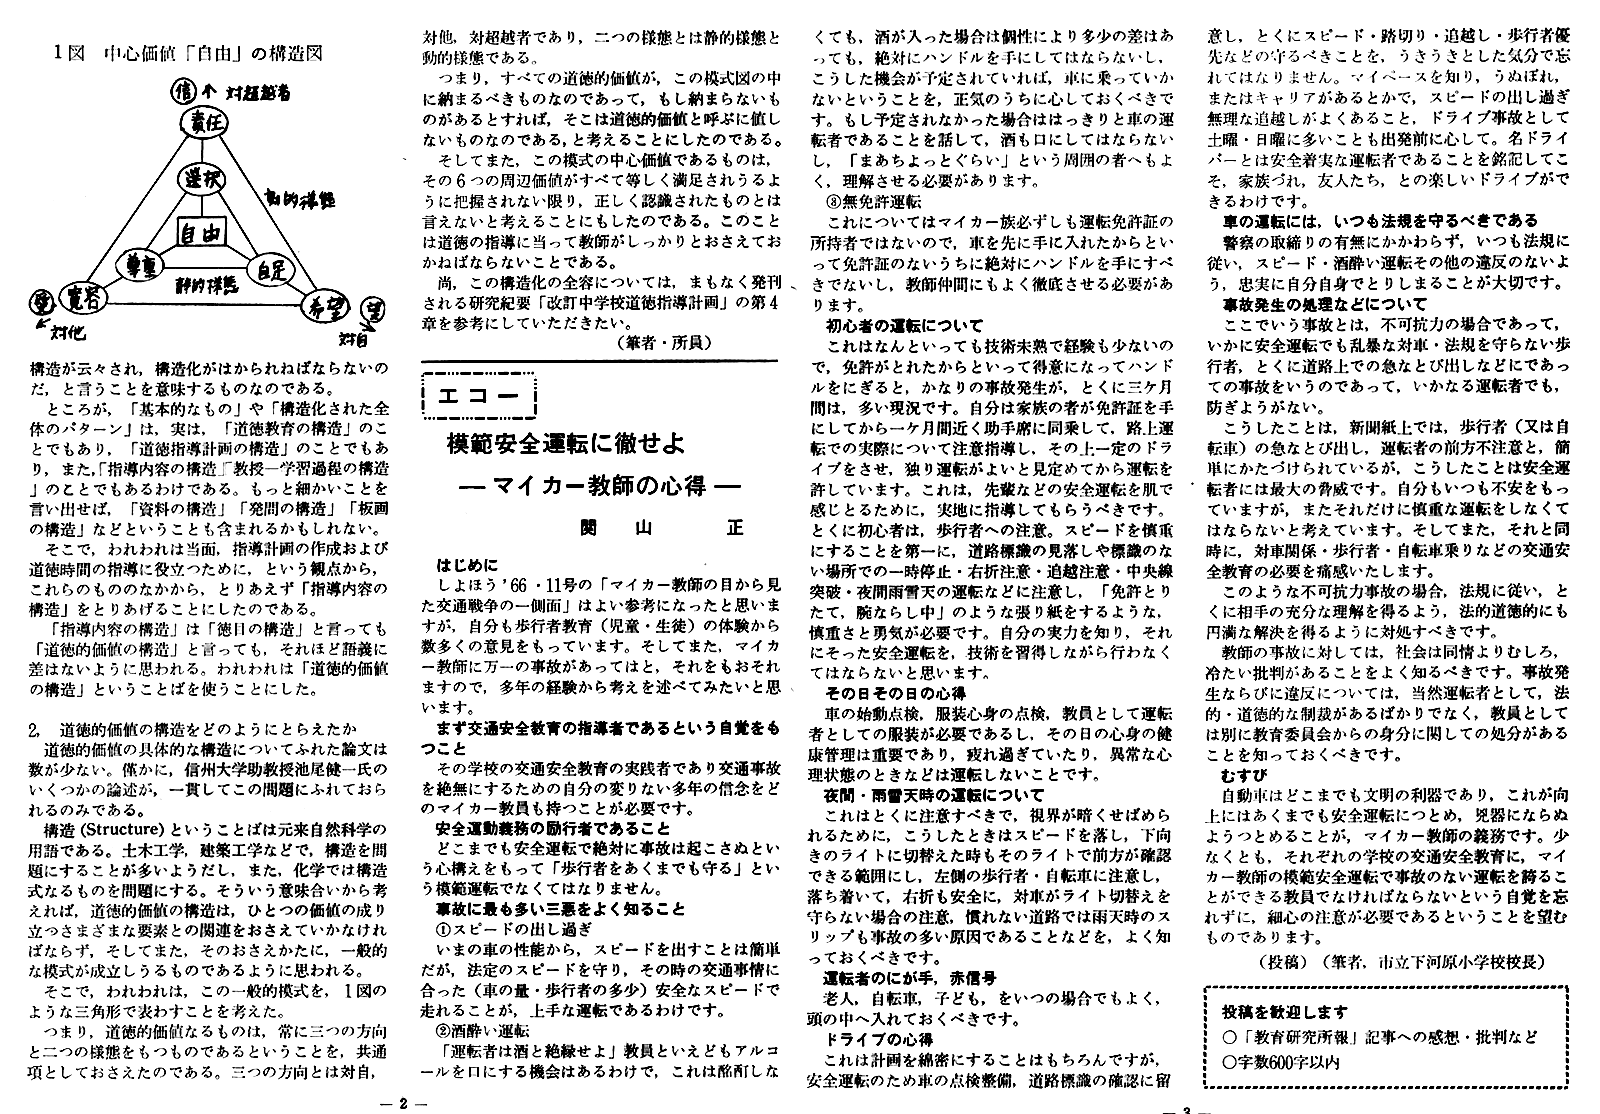 1図　中心価値「自由」の構造図
信 ↑ 対超越者
責任
選択
動的様態
自由
尊重
自足
静的様態
愛 寛容
希望 望
対他
対自
構造が云々され，構造化がはかられねばならないの
だ，と言うことを意味するものなのである。
　ところが，「基本的なもの」や「構造化された全
体のパターン」は，実は，「道徳教育の構造」のこ
とでもあり，「道徳指導計画の構造」のことでもあ
り，また,「指導内容の構造」「教授―学習過程の構造
」のことでもあるわけである。もっと細かいことを
言い出せば，「資料の構造」「発問の構造」「板画
の構造」などということも含まれるかもしれない。
　そこで，われわれは当面，指導計画の作成および
道徳時間の指導に役立つために，という観点から，
これらのもののなかから，とりあえず「指導内容の
構造」をとりあげることにしたのである。
　「指導内容の構造」は「徳目の構造」と言っても
「道徳的価値の構造」と言っても，それほど語義に
差はないように思われる。われわれは「道徳的価値
の構造」ということばを使うことにした。
2,　道徳的価値の構造をどのようにとらえたか
　道徳的価値の具体的な構造についてふれた論文は
数が少ない。僅かに，信州大学助教授池尾健一氏の
いくつかの論述が，一貫してこの問題にふれておら
れるのみである。
　構造 (Structure) ということばは元来自然科学の
用語である。土木工学，建築工学などで，構造を問
題にすることが多いようだし，また，化学では構造
式なるものを問題にする。そういう意味合いから考
えれば，道徳的価値の構造は，ひとつの価値の成り
立つさまざまな要素との関連をおさえていかなけれ
ばならず，そしてまた，そのおさえかたに，一般的
な模式が成立しうるものであるように思われる。
　そこで，われわれは，この一般的模式を，１図の
ような三角形で表わすことを考えた。
　つまり，道徳的価値なるものは，常に三つの方向
と二つの様態をもつものであるということを，共通
項としておさえたのである。三つの方向とは対自，
対他，対超越者であり，二つの様態とは静的様態と
動的様態である。
　つまり，すべての道徳的価値が，この模式図の中
に納まるべきものなのであって，もし納まらないも
のがあるとすれば，そこは道徳的価値と呼ぶに値し
ないものなのである，と考えることにしたのである。
　そしてまた，この模式の中心価値であるものは，
その６つの周辺価値がすべて等しく満足されうるよ
うに把握されない限り，正しく認識されたものとは
言えないと考えることにもしたのである。このこと
は道徳の指導に当って教師がしっかりとおさえてお
かねばならないことである。
　尚，この構造化の全容については，まもなく発刊
される研究紀要「改訂中学校道徳指導計画」の第４
章を参考にしていただきたい。
（筆者・所員）
エコー
模範安全運転に徹せよ
― マイカー教師の心得 ―
関　山　　　正
はじめに
　しよほう’66・11号の「マイカー教師の目から見
た交通戦争の一側面」はよい参考になったと思いま
すが，自分も歩行者教育（児童・生徒）の体験から
数多くの意見をもっています。そしてまた，マイカ
ー教師に万一の事故があってはと，それをもおそれ
ますので，多年の経験から考えを述べてみたいと思
います。
　まず交通安全教育の指導者であるという自覚をも
つこと
　その学校の交通安全教育の実践者であり交通事故
を絶無にするための自分の変りない多年の信念をど
のマイカー教員も持つことが必要です。
安全運動義務の励行者であること
　どこまでも安全運転で絶対に事故は起こさぬとい
う心構えをもって「歩行者をあくまでも守る」とい
う模範運転でなくてはなりません。
事故に最も多い三悪をよく知ること
①スピードの出し過ぎ
　いまの車の性能から，スピードを出すことは簡単
だが，法定のスピードを守り，その時の交通事情に
合った（車の量・歩行者の多少）安全なスピードで
走れることが，上手な運転であるわけです。
②酒酔い運転
　「運転者は酒と絶縁せよ」教員といえどもアルコ
ールを口にする機会はあるわけで，これは酩酊しな
くても，酒が入った場合は個性により多少の差はあ
っても，絶対にハンドルを手にしてはならないし，
こうした機会が予定されていれば，車に乗っていか
ないということを，正気のうちに心しておくべきで
す。もし予定されなかった場合ははっきりと車の運
転者であることを話して，酒も口にしてはならない
し，「まあちょっとぐらい」という周囲の者へもよ
く，理解させる必要があります。
③無免許運転
　これについてはマイカー族必ずしも運転免許証の
所持者ではないので，車を先に手に入れたからとい
って免許証のないうちに絶対にハンドルを手にすべ
きでないし，教師仲間にもよく徹底させる必要があ
ります。
初心者の運転について
　これはなんといっても技術未熟で経験も少ないの
で，免許がとれたからといって得意になってハンド
ルをにぎると，かなりの事故発生が，とくに三ケ月
間は，多い現況です。自分は家族の者が免許証を手
にしてから一ケ月間近く助手席に同乗して，路上運
転での実際について注意指導し，その上一定のドラ
イブをさせ，独り運転がよいと見定めてから運転を
許しています。これは，先輩などの安全運転を肌で
感じとるために，実地に指導してもらうべきです。
とくに初心者は，歩行者への注意。スピードを慎重
にすることを第一に，道路標識の見落しや標識のな
い場所での一時停止・右折注意・追越注意・中央線
突破・夜間雨雪天の運転などに注意し，「免許とり
たて，腕ならし中」のような張り紙をするような，
慎重さと勇気が必要です。自分の実力を知り，それ
にそった安全運転を，技術を習得しながら行わなく
てはならないと思います。
その日その日の心得
　車の始動点検，服装心身の点検，教員として運転
者としての服装が必要であるし，その日の心身の健
康管理は重要であり，疲れ過ぎていたり，異常な心
理状態のときなどは運転しないことです。
夜間・雨雪天時の運転について
　これはとくに注意すべきで，視界が暗くせばめら
れるために，こうしたときはスピードを落し，下向
きのライトに切替えた時もそのライトで前方が確認
できる範囲にし，左側の歩行者・自転車に注意し，
落ち着いて，右折も安全に，対車がライト切替えを
守らない場合の注意，慣れない道路では雨天時のス
リップも事故の多い原因であることなどを，よく知
っておくべきです。
運転者のにが手，赤信号
　老人，自転車，子ども，をいつの場合でもよく，
頭の中へ入れておくべきです。
ドライブの心得
　これは計画を綿密にすることはもちろんですが，
安全運転のため車の点検整備，道路標識の確認に留
意し，とくにスピード・踏切り・追越し・歩行者優
先などの守るべきことを，うきうきとした気分で忘
れてはなりません。マイペースを知り，うぬぼれ，
またはキャリアがあるとかで，スピードの出し過ぎ
無理な追越しがよくあること，ドライブ事故として
土曜・日曜に多いことも出発前に心して。名ドライ
バーとは安全着実な運転者であることを銘記してこ
そ，家族づれ，友人たち，との楽しいドライブがで
きるわけです。
車の運転には，いつも法規を守るべきである
　警察の取締りの有無にかかわらず，いつも法規に
従い，スピード・酒酔い運転その他の違反のないよ
う，忠実に自分自身でとりしまることが大切です。
事故発生の処理などについて
　ここでいう事故とは，不可抗力の場合であって，
いかに安全運転でも乱暴な対車・法規を守らない歩
行者，とくに道路上での急なとび出しなどにであっ
ての事故をいうのであって，いかなる運転者でも，
防ぎようがない。
　こうしたことは，新聞紙上では，歩行者（又は自
転車）の急なとび出し，運転者の前方不注意と，簡
単にかたづけられているが，こうしたことは安全運
転者には最大の脅威です。自分もいつも不安をもっ
ていますが，またそれだけに慎重な運転をしなくて
はならないと考えています。そしてまた，それと同
時に，対車関係・歩行者・自転車乗りなどの交通安
全教育の必要を痛感いたします。
　このような不可抗力事故の場合，法規に従い，と
くに相手の充分な理解を得るよう，法的道徳的にも
円満な解決を得るように対処すべきです。
　教師の事故に対しては，社会は同情よりむしろ，
冷たい批判があることをよく知るべきです。事故発
生ならびに違反については，当然運転者として，法
的・道徳的な制裁があるばかりでなく，教員として
は別に教育委員会からの身分に関しての処分がある
ことを知っておくべきです。
むすび
　自動車はどこまでも文明の利器であり，これが向
上にはあくまでも安全運転につとめ，兇器にならぬ
ようつとめることが，マイカー教師の義務です。少
なくとも，それぞれの学校の交通安全教育に，マイ
カー教師の模範安全運転で事故のない運転を誇るこ
とができる教員でなければならないという自覚を忘
れずに，細心の注意が必要であるということを望む
ものであります。
（投稿）（筆者，市立下河原小学校校長）
投稿を歓迎します
○「教育研究所報」記事への感想・批判など
○字数600字以内
― 2 ―
― 3 ―